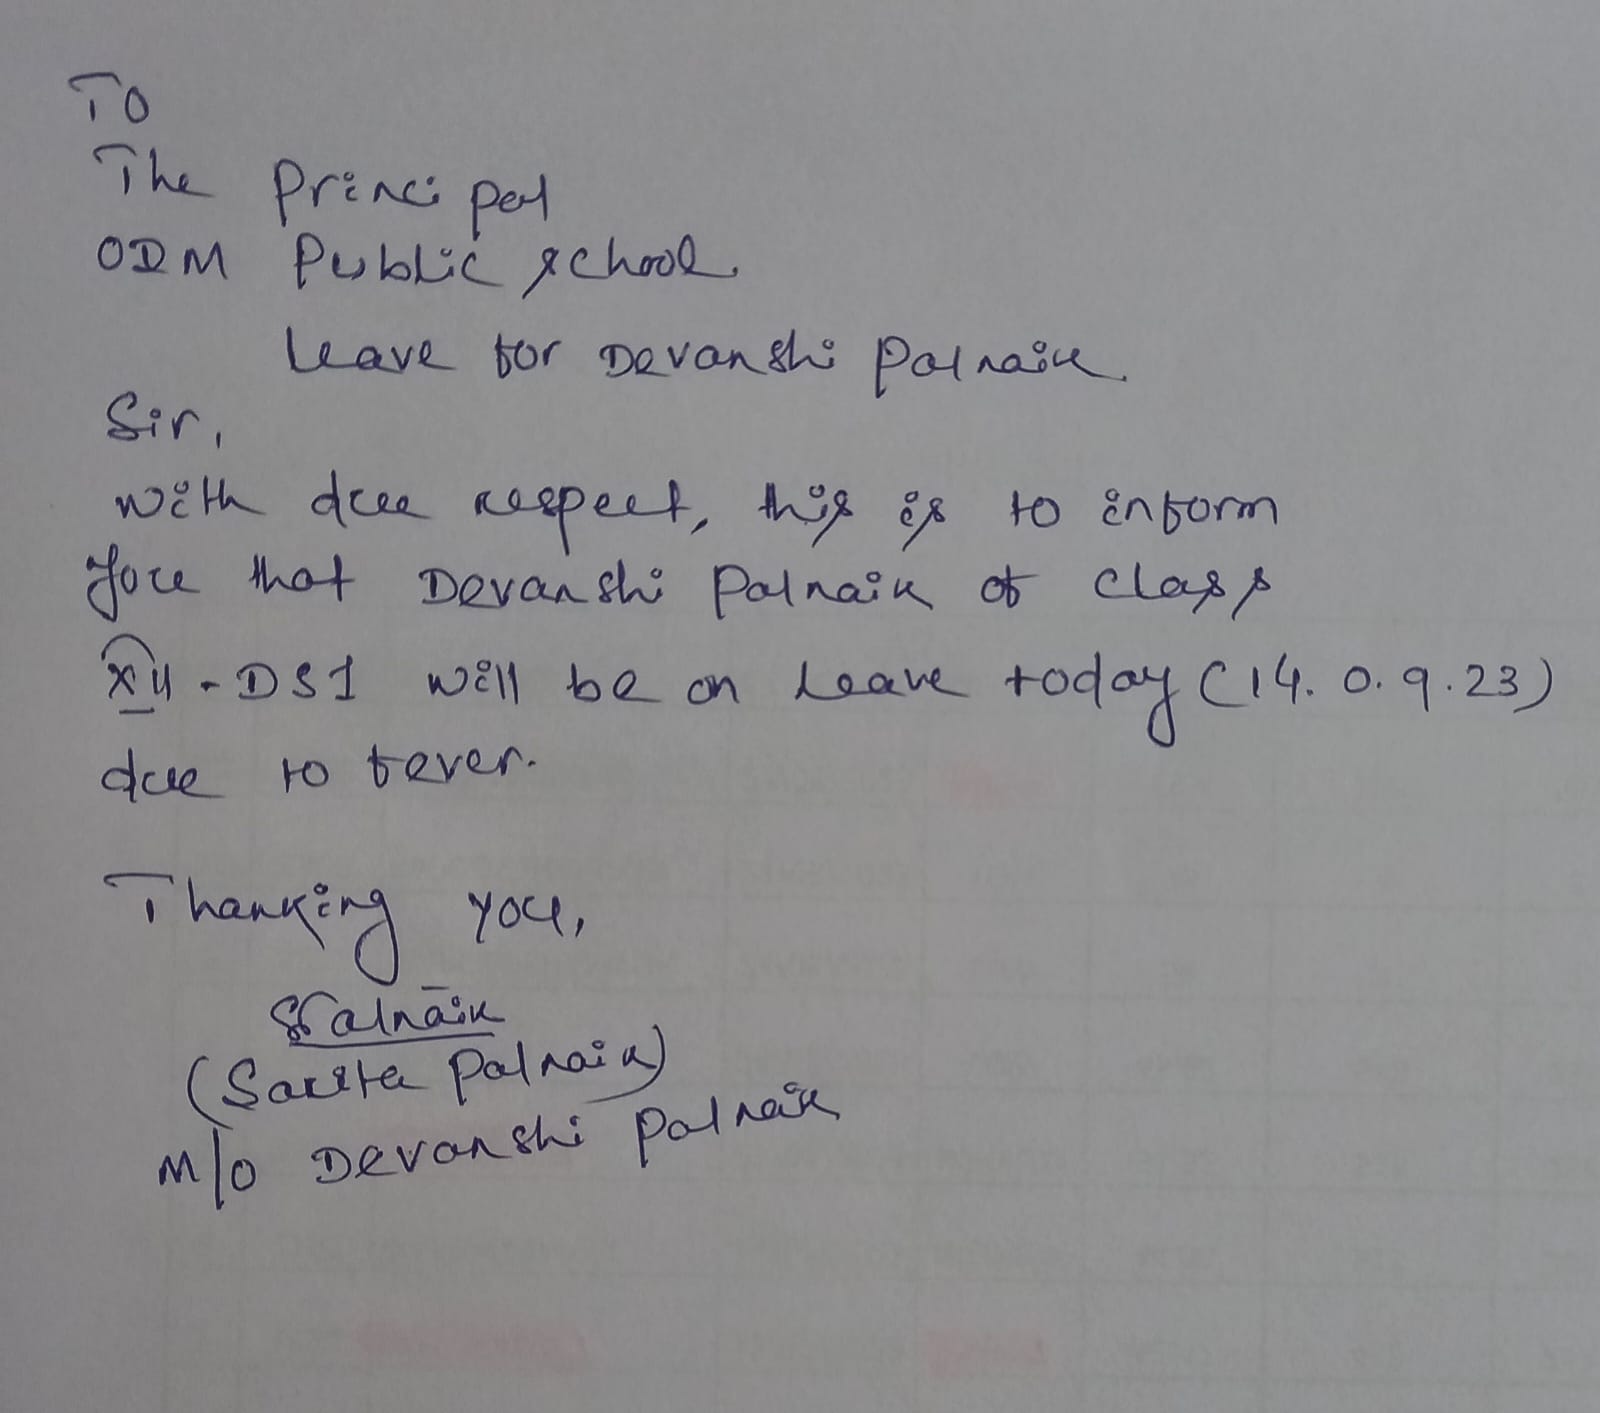 To
The Principal
ODM Public school
Leave for Devanshi Patnaik
Sir,
With due respect, this is to inform
you that Devanshi Patnaik of class
XII - DS1 will be on leave today (14. 0. 9. 23)
due to fever.
Thanking you,
SPatnaik
(Sarita Patnaik)
M/o Devanshi Patnaik